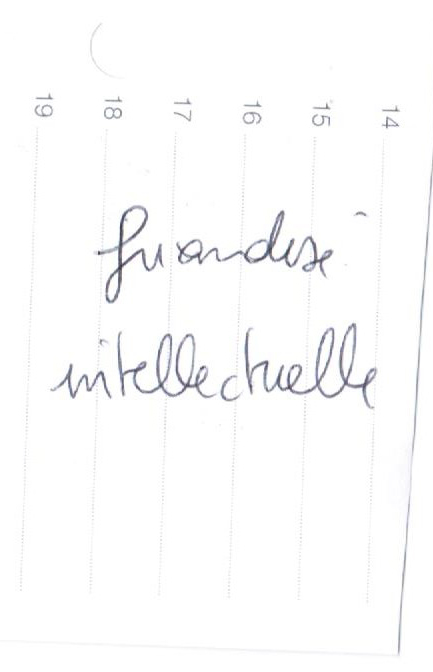 19 18 17 16 15 14
friandise
intellectuelle